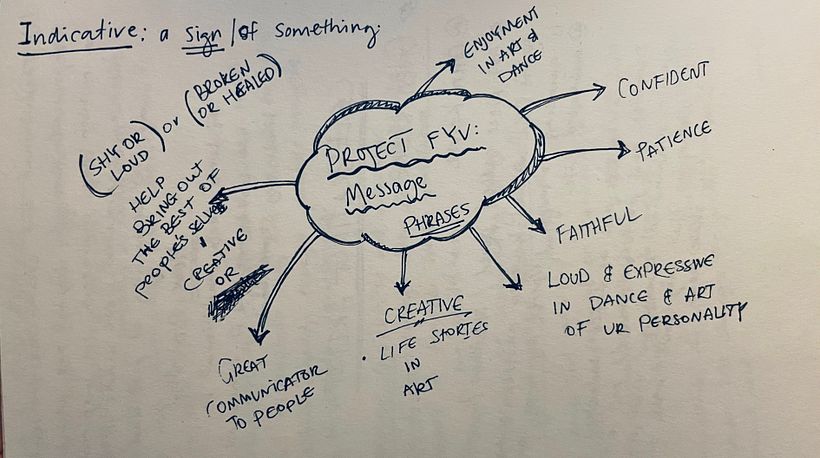 Indicative: a sign/of something.
ENJOYMENT
IN ART &
DANCE
CONFIDENT
PATIENCE
FAITHFUL
LOUD & EXPRESSIVE
IN DANCE & ART
OF UR PERSONALITY
PROJECT FYV:
Message
PHRASES
CREATIVE
. LIFE STORIES
IN
ART
GREAT
COMMUNICATOR
TO PEOPLE
(SHY OR
LOUD) or (BROKEN
OR HEALED)
HELP
BRING OUT
THE BEST OF
people's selves
CREATIVE
OR